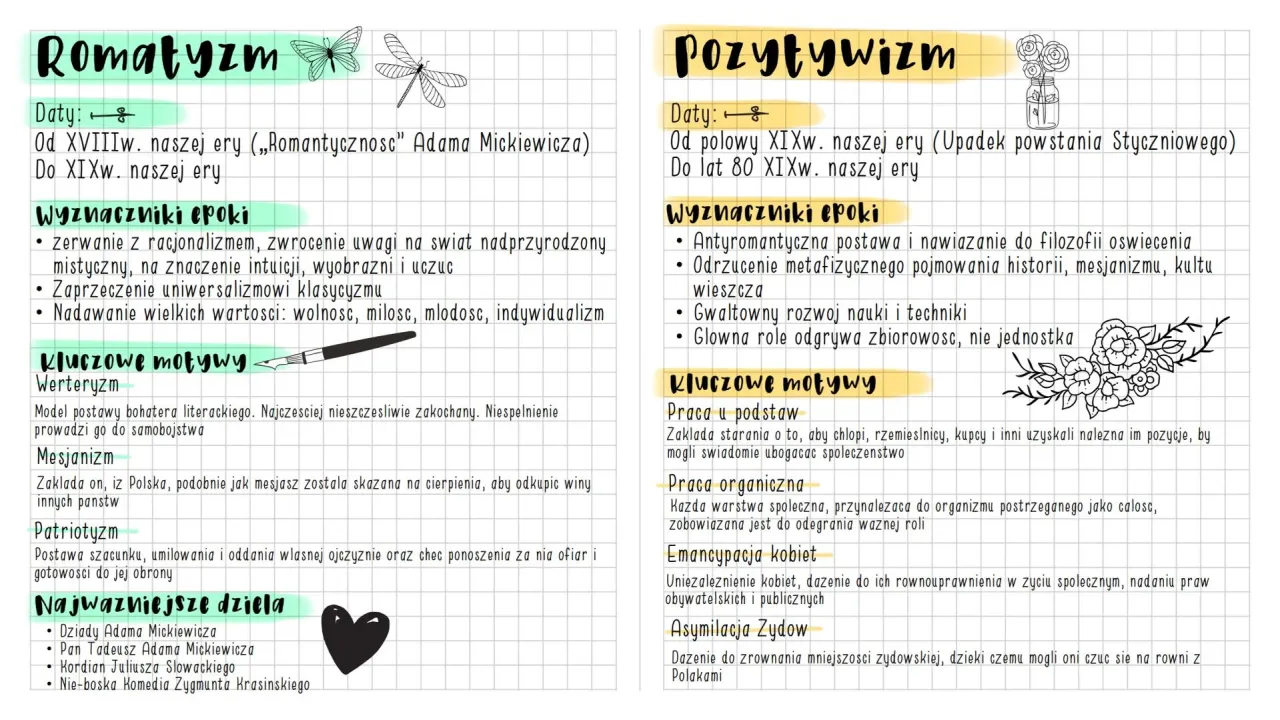 Romatyzm
Daty:
Od XVIIIw. naszej ery („Romantycznosc" Adama Mickiewicza)
Do XIXw. naszej ery
Wyznaczniki epoki
• zerwanie z racjonalizmem, zwrocenie uwagi na swiat nadprzyrodzony
mistyczny, na znaczenie intuicji, wyobrazni i uczuc
• Zaprzeczenie uniwersalizmowi klasycyzmu
• Nadawanie wielkich wartosci: wolnosc, milosc, mlodosc, indywidualizm
Kluczowe motywy
Werteryzm
Model postawy bohatera literackiego. Najczesciej nieszczesliwie zakochany. Niespelnienie
prowadzi go do samobojstwa
Mesjanizm
Zaklada on, iz Polska, podobnie jak mesjasz zostala skazana na cierpienia, aby odkupic winy
innych panstw
Patriotyzm
Postawa szacunku, umilowania i oddania wlasnej ojczyznie oraz chec ponoszenia za nia ofiar i
gotowosci do jej obrony
Najwazniejsze dziela
• Dziady Adama Mickiewicza
• Pan Tadeusz Adama Mickiewicza
• Kordian Juliusza Slowackiego
• Nie-boska Komedia Zygmunta Krasinskiego
Pozytywizm
Daty:
Od polowy XIXw. naszej ery (Upadek powstania Styczniowego)
Do lat 80 XIXw. naszej ery
Wyznaczniki epoki
• Antyromantyczna postawa i nawiazanie do filozofii oswiecenia
• Odrzucenie metafizycznego pojmowania historii, mesjanizmu, kultu
wieszcza
• Gwaltowny rozwoj nauki i techniki
• Glowna role odgrywa zbiorowosc, nie jednostka
Kluczowe motywy
Praca u podstaw
Zaklada starania o to, aby chlopi, rzemieslnicy, kupcy i inni uzyskali nalezna im pozycje, by
mogli swiadomie ubogacac spoleczenstwo
Praca organiczna
Kazda warstwa spoleczna, przynalezaca do organizmu postrzeganego jako calosc,
zobowiazana jest do odegrania waznej roli
Emancypacja kobiet
Uniezaleznienie kobiet, dazenie do ich rownouprawnienia w zyciu spolecznym, nadaniu praw
obywatelskich i publicznych
Asymilacja Zydow
Dazenie do zrownania mniejszosci zydowskiej, dzieki czemu mogli oni czuc sie na rowni z
Polakami